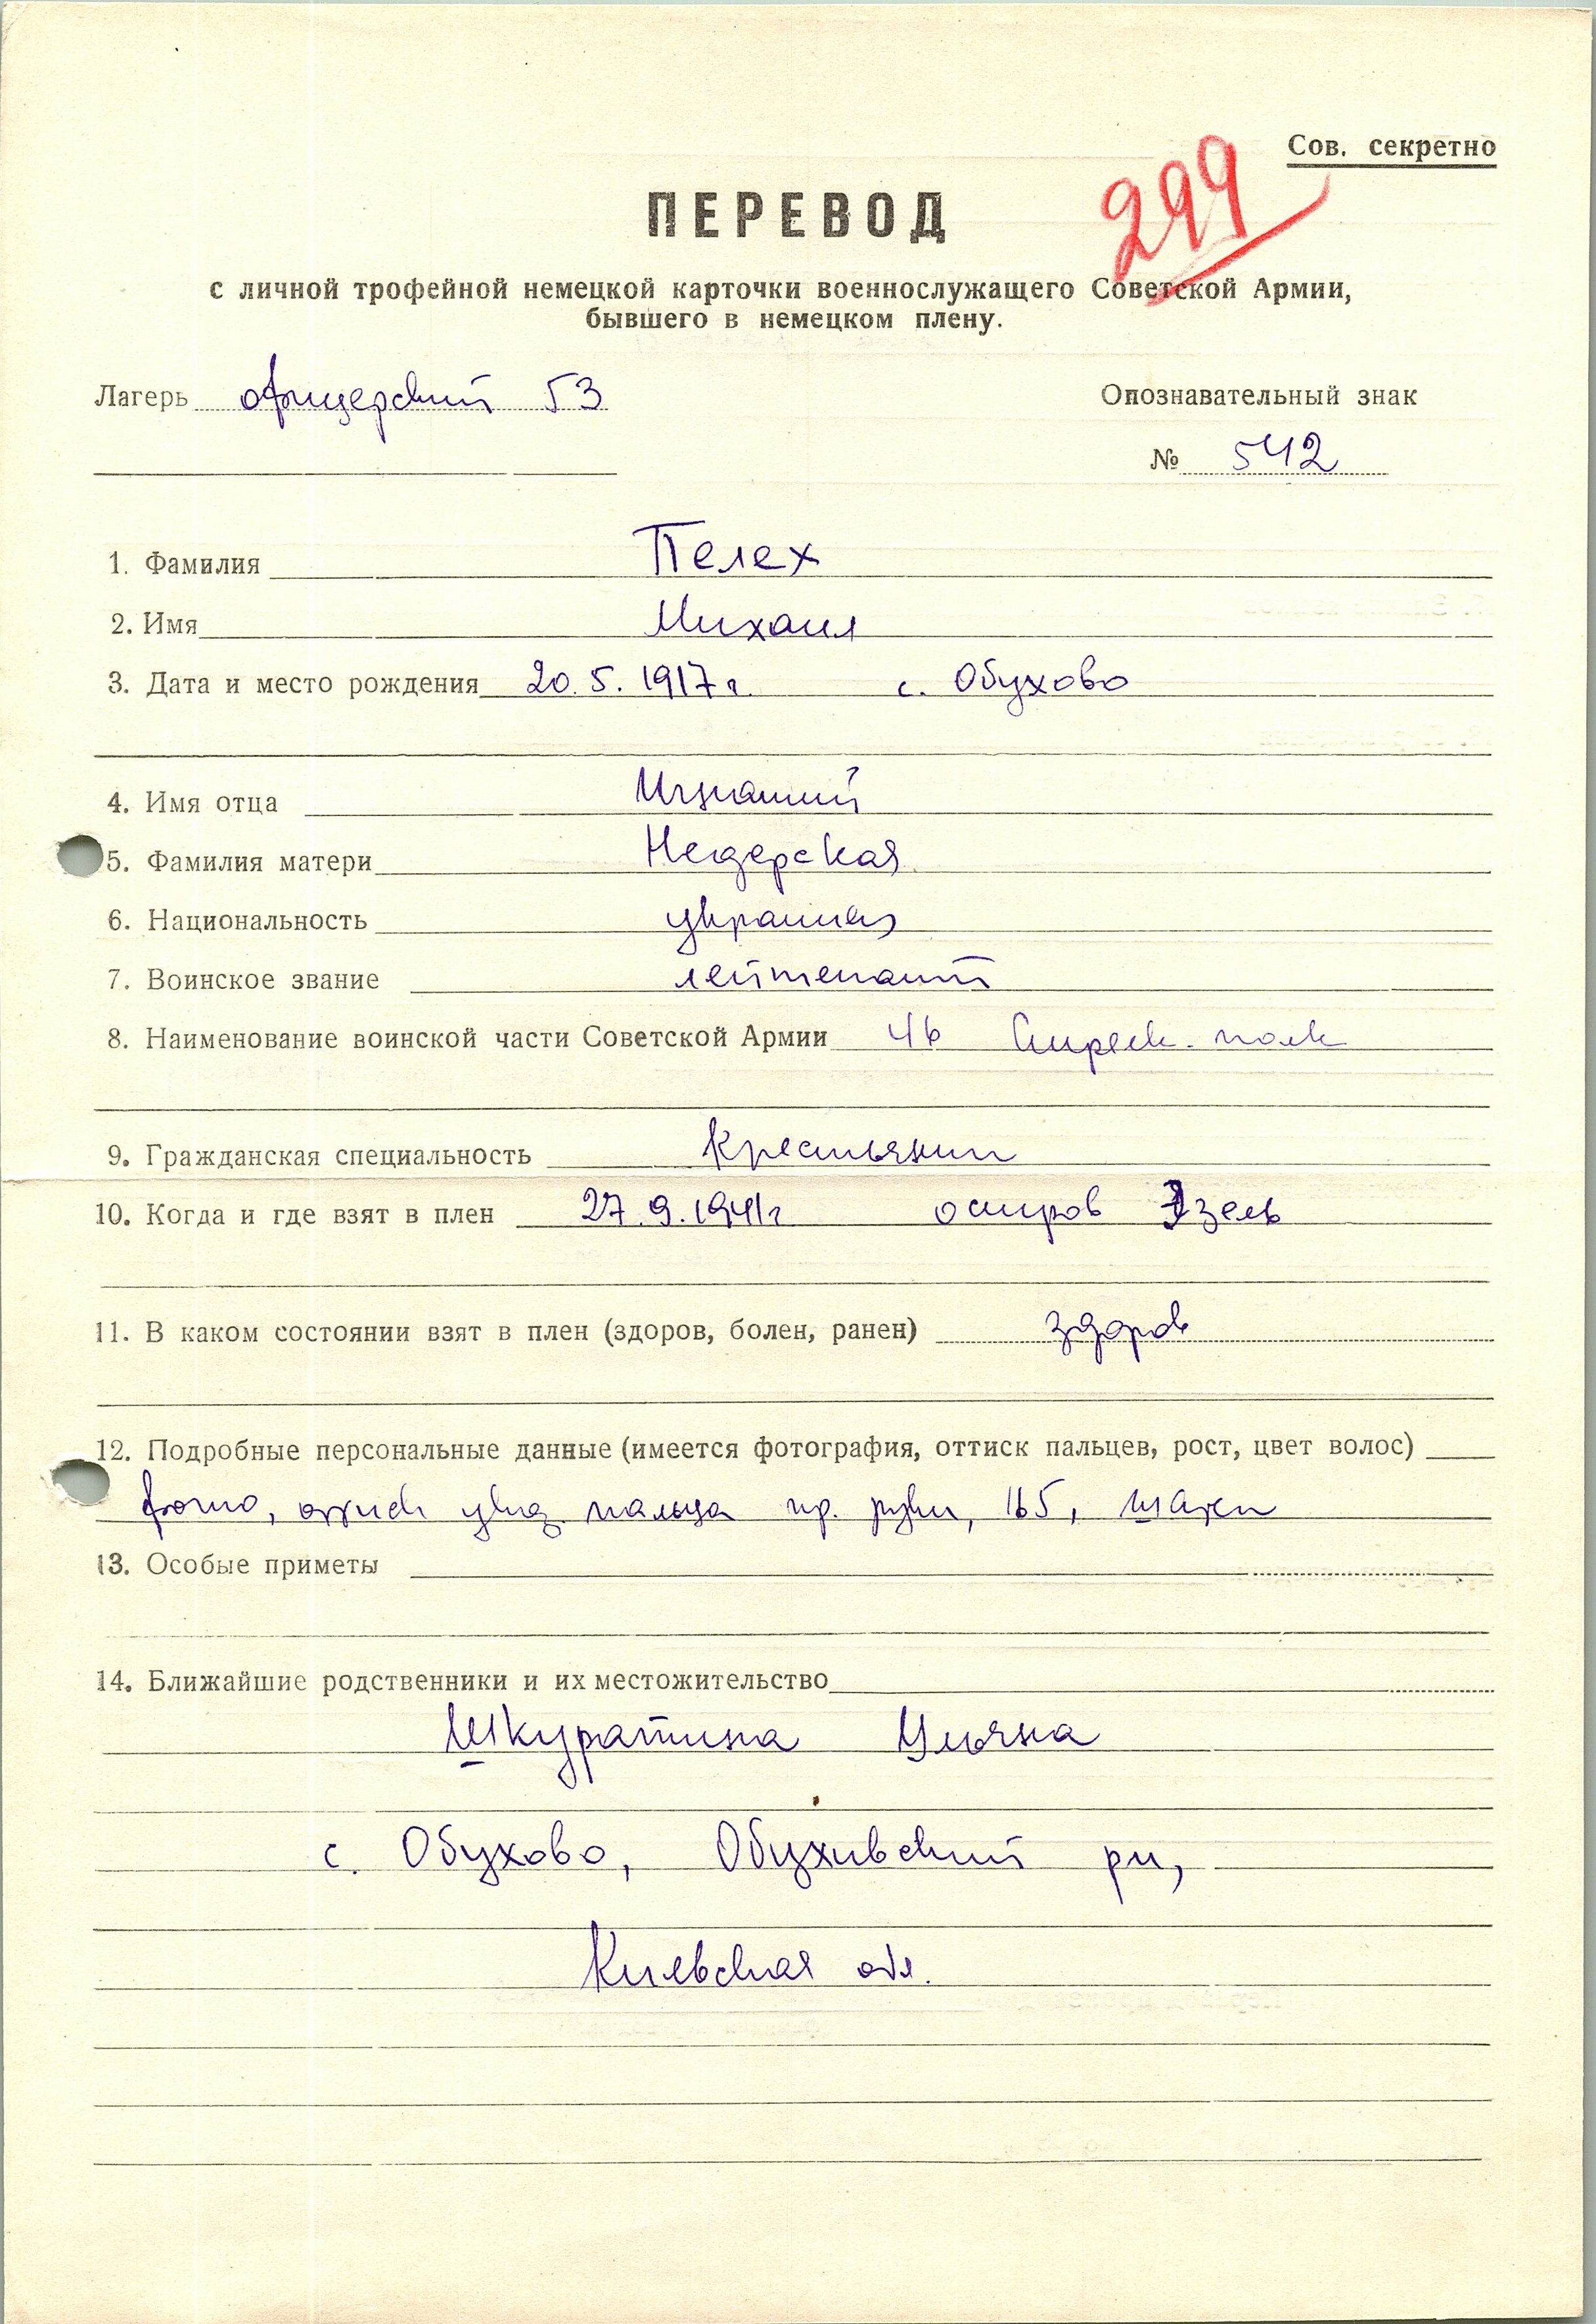 Сов. секретно
299
ПЕРЕВОД
с личной трофейной немецкой карточки военнослужащего Советской Армии,
бывшего в немецком плену.
Лагерь офицерский 53
Опознавательный знак
№ 542
1. Фамилия Пелех
2. Имя Михаил
3. Дата и место рождения 20.5.1917г. с. Обухово
4. Имя отца Игнатий
5. Фамилия матери
6. Национальность украинец
7. Воинское звание лейтенант
8. Наименование воинской части Советской Армии 46 Стрелк. полк
9. Гражданская специальность Крестьянин
10. Когда и где взят в плен 27.9.1941г остров Эзель
11. В каком состоянии взят в плен (здоров, болен, ранен) здоров
12. Подробные персональные данные (имеется фотография, оттиск пальцев, рост, цвет волос)
фото, оттиск указ. пальца пр. руки, 165,
13. Особые приметы
14. Ближайшие родственники и их местожительство
Шкуратина Ульяна
с. Обухово, Обухивский рн,
Киевская обл.